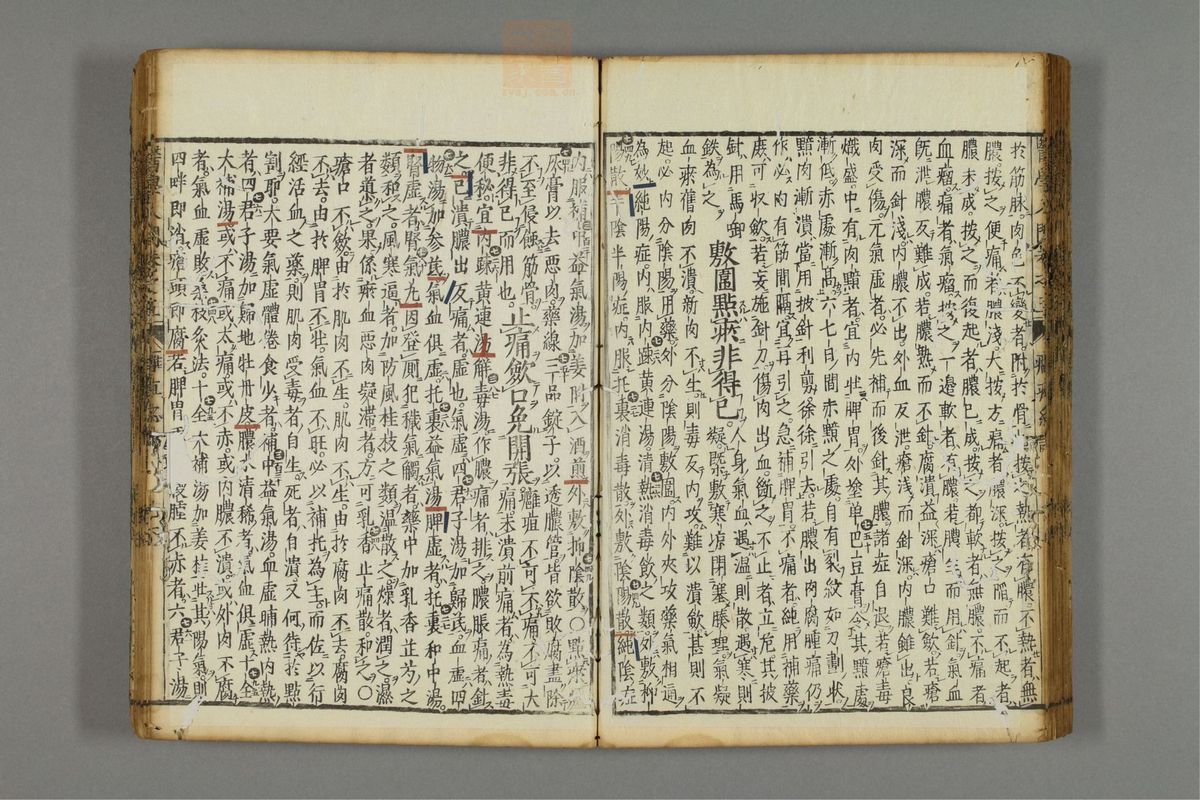 於筋脉。肉色不變者。附於骨。按之熱者有膿。不熱者。無
膿。按之便痛者膿淺。大按方痛者膿深。按之陷而不起者。
膿未成。按之而後起者膿已成。按之都軟者無膿。不痛者
血瘤。痛者氣瘤。按之一邊軟者。有膿。若膿生而用針。氣血
既泄。膿反難成。若膿熟而不針。腐潰益深。瘡口難歛。若瘡
深而針淺。內膿不出。外血反泄。瘡淺而針深。內膿雖出。良
肉受傷。元氣虛者必先補。而後針其膿。諸症自退。若瘡毒
熾盛。中有肉黯者。宜內壯脾胃。外塗单巴豆膏。令其黯處
漸低。赤處漸高。六七日間。赤黯之處。自有裂紋如刀劃狀。
黯肉漸潰。當用披針利剪。徐徐引去。若膿出肉腐腫痛仍
作。必內有筋間隔。宜再引之。急補脾胃。不痛者純用補藥
庶可收歛。若妄施針刀。傷肉出血。斷之不止者。立危。其披
針用馬啣
鉄為之 敷圍點痰非得已 凝既敷寒凉閉塞腠理。氣凝
血瘀。舊肉不潰。新肉不生。則毒反下攻。難以潰歛。甚則不
起。必內分陰陽用藥。外分陰陽敷圍。內外夾攻。藥氣相逼
為妙。純陽症。內服內踈黃連湯。清熱消毒飲之類。外敷抑
陽散。半陰半陽症。內服托裏消毒散。外敷陰陽散。純陰症
內服補中益氣湯加姜附。入酒煎。外敷抑陰散。○點瘀。用
灰膏以去悪肉。藥線二品錠子。以透膿管。皆欲敗腐盡除
不至侵傷筋骨。
非得已而用也。止痛歛口免開張 癰疽不可不痛。不可大
痛。未潰前痛者。為熱毒
便秘。宜內踈黃連湯。解毒湯。作膿痛者。排之。膿脹痛者。針
之。已潰膿出反痛者。虛也。氣虛四君子湯。加歸芪。血虛四
物湯。加參芪。氣血俱虛。托裏益氣湯。脾虛者。托裏和中湯。
腎虛者。腎氣丸。因登厠犯穢氣觸者。藥中加乳香芷芍之
類和之。風寒逼者。加防風桂枝之類溫散之。燥者潤之。濕
者滲之。果係瘀血悪肉凝滯者。方可乳香止痛散和之。○
瘡口不歛。由於肌肉不生。肌肉不生。由於腐肉不去。腐肉
不去。由於脾胃不壯。氣血不旺。必以補托為主。而佐以行
經活血之藥。則肌肉受毒者自生。死者自潰。又何待於點
割耶。大要氣虛體倦食少者。補中益氣湯。血虛晡熱內熱
者。四君子湯。加歸地牡丹皮。膿水清稀者。氣血俱虛。十全
大補湯。或不痛或太痛。或不赤。或內膿不潰。或外肉不腐
者。氣血虛敗。桑枝灸法。十全大補湯加姜桂。壯其陽氣。則
四畔即消。瘡頭即腐。若脾胃 腔不赤者。六君子湯